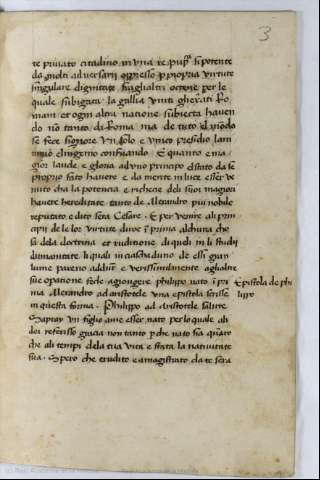 3
te privato citadino in una re pup.ª si potente
da molti adversarii oppresso p propria virtute
singulare dignitate fra gli altri octene per le
quale subigata la gallia vinti gherati Ro
mani et ogni altra natione subiecta haven
do nō tanto di Roma ma de tuto el mōdo
se fece signore Un solo e unico presidio lani
mo e lingegno confidando. E quanto e ma
gior laude e gloria ad uno principo el stato da se
proprio fato havere e da mente in luce esser ve
nuto cha la potencia e richeze deli suoi magiori
havere hereditate tanto de Alexandro piu nobile
reputato e dito sera Cesare. E per venire ali prin
cipii de le lor virtute diroe ī prima alchuna cha
sa dela doctrina et ruditione di queli in li studii
dumanitate li quali in ciaschaduno de essi gran
lume pareno addure e verissimilmente aglaltre
sue opatione fede agiongere philippo nato ī pri
ma Alexandro ad aristotele una epistola scrisse
Epistola de phi
lippo
in questa forma. Philippo ad Aristotele salute
Sapray un figlio a me esser nato per lo quale ali
dei referisso gracia non tanto p che nato sia quāto
che ali tempi dela tua vita e stata la nativitate
sua. Spero che erudito e amagistrato da te sera